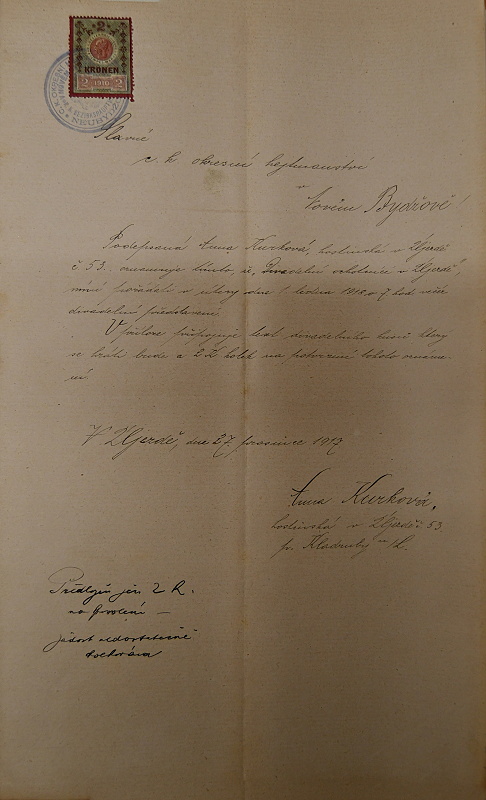 2
KRONEN
2 1910 2
Slavné
c. k. okresní hejtmanství
v
Novém Bydžově!
Podepsaná Anna Kurková, hostinská v
č 53. oznamuje tímto, že „Divadelní ochotníci v
míní pořádati v úterý dne 1. ledna 1918 o 7 hod. več.
divadelní představení.
V příloze připojuje text divadelního kusu, který
se hráti bude a 2 K kolek na potvrzení tohoto oznáme-
ní.
V dne 27. prosince 1917
Anna Kurková,
hostinská v č 53.
p. Kladruby
Předložen jen 2 K.
na povolení —
žádost nedostatečně
kolkována